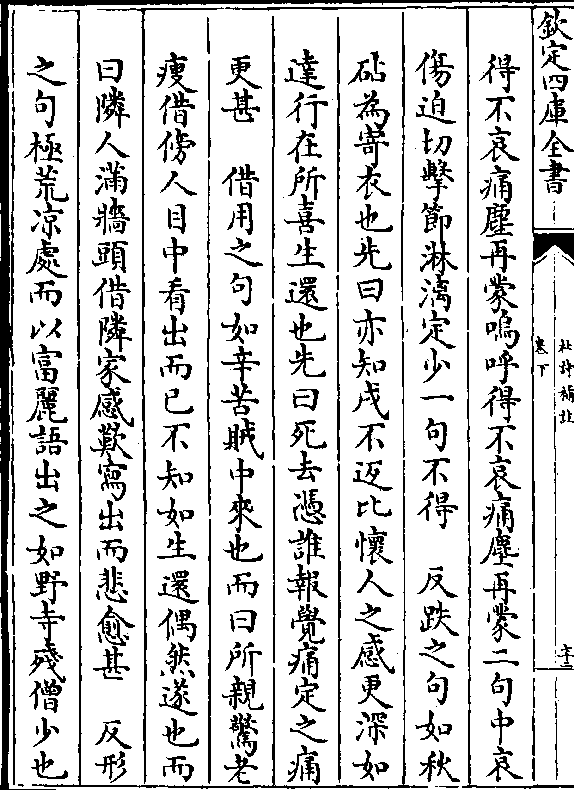 欽定四庫全書
杜詩攟
卷下
得不哀痛塵再蒙嗚呼得不哀痛塵再蒙二句中哀
傷迫切擊節淋漓定少一句不得　反跌之句如秋
砧為寄衣也先曰亦知戍不返比懷人之感更深如
達行在所喜生還也先曰死去憑誰報覺痛定之痛
更甚　借用之句如辛苦賊中來也而曰所親驚老
瘦借傍人目中看出而已不知如生還偶然遂也而
曰隣人滿牆頭借隣家感歎寫出而悲愈甚　反形
之句極荒凉處而以富麗語出之如野寺殘僧少也